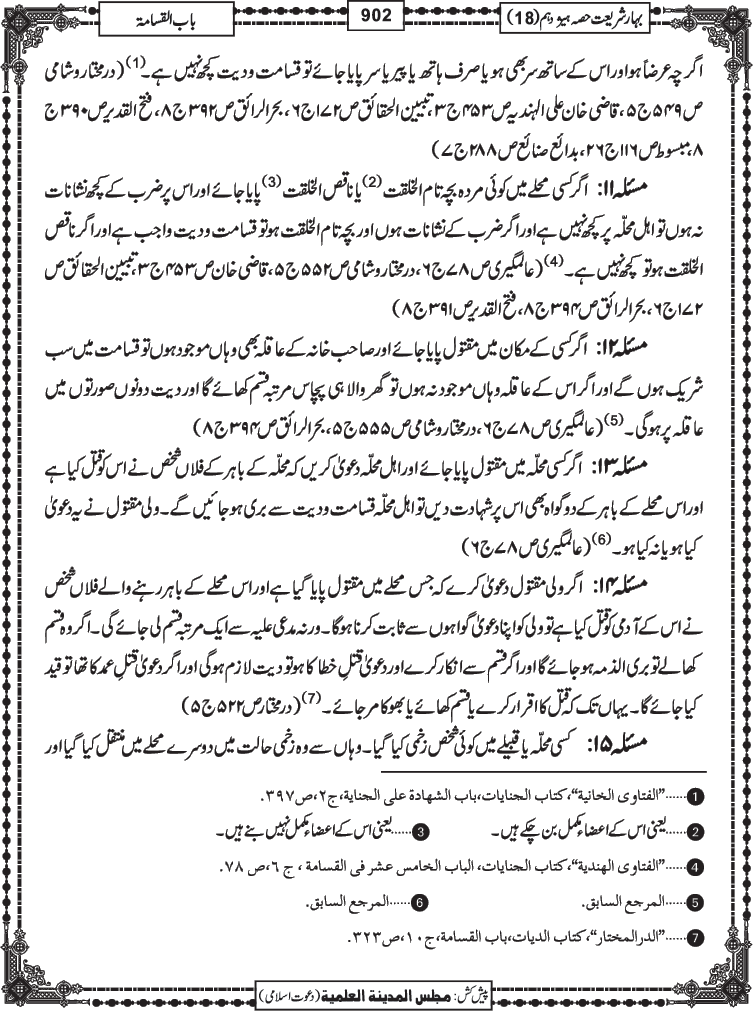 بہار شریعت حصہ ہیژدہم (18)
902
باب القسامۃ
اگرچہ عرضاً ہو اور اس کے ساتھ سر بھی ہو یا صرف ہاتھ یا پیر یا سر پایا جائے تو قسامت و دیت کچھ نہیں ہے۔(1) (درمختار و شامی
ص ۵۴۹ ج ۵، قاضی خان علی الہندیہ ص ۴۵۳ ج ۳، تبیین الحقائق ص ۱۷۲ ج ۶، بحر الرائق ص ۳۹۲ ج ۸، فتح القدیر ص ۳۹۰ ج
۸، مبسوط ص ۱۱۶ ج ۲۶، بدائع صنائع ص ۲۸۸ ج ۷)
مسئلہ ۱۱: اگر کسی محلے میں کوئی مردہ بچہ تام الخلقت (2) یا ناقص الخلقت (3) پایا جائے اور اس پر ضرب کے کچھ نشانات
نہ ہوں تو اہل محلہ پر کچھ نہیں ہے اور اگر ضرب کے نشانات ہوں اور بچہ تام الخلقت ہو تو قسامت و دیت واجب ہے اور اگر ناقص
الخلقت ہو تو کچھ نہیں ہے۔(4) (عالمگیری ص ۷۸ ج ۶، درمختار و شامی ص ۵۵۲ ج ۵، قاضی خان ص ۴۵۳ ج ۳، تبیین الحقائق ص
۱۷۲ ج ۶، بحر الرائق ص ۳۹۴ ج ۸، فتح القدیر ص ۳۹۱ ج ۸)
مسئلہ ۱۲: اگر کسی کے مکان میں مقتول پایا جائے اور صاحب خانہ کے عاقلہ بھی وہاں موجود ہوں تو قسامت میں سب
شریک ہوں گے اور اگر اس کے عاقلہ وہاں موجود نہ ہوں تو گھر والا ہی پچاس مرتبہ قسم کھائے گا اور دیت دونوں صورتوں میں
عاقلہ پر ہوگی۔(5) (عالمگیری ص ۷۸ ج ۶، درمختار و شامی ص ۵۵۵ ج ۵، بحر الرائق ص ۳۹۴ ج ۸)
مسئلہ ۱۳: اگر کسی محلہ میں مقتول پایا جائے اور اہل محلہ دعویٰ کریں کہ محلہ کے باہر کے فلاں شخص نے اس کو قتل کیا ہے
اور اس محلے کے باہر کے دو گواہ بھی اس پر شہادت دیں تو اہل محلہ قسامت و دیت سے بری ہو جائیں گے۔ ولی مقتول نے یہ دعویٰ
کیا ہو یا نہ کیا ہو۔(6) (عالمگیری ص ۷۸ ج ۶)
مسئلہ ۱۴: اگر ولی مقتول دعویٰ کرے کہ جس محلے میں مقتول پایا گیا ہے اور اس محلے کے باہر رہنے والے فلاں شخص
نے اس کے آدمی کو قتل کیا ہے تو ولی کو اپنا دعویٰ گواہوں سے ثابت کرنا ہوگا۔ ورنہ مدعی علیہ سے ایک مرتبہ قسم لی جائے گی۔ اگر وہ قسم
کھا لے تو بری الذمہ ہو جائے گا اور اگر قسم سے انکار کرے اور دعویٰ قتلِ خطا کا ہو تو دیت لازم ہوگی اور اگر دعویٰ قتلِ عمد کا تھا تو قید
کیا جائے گا۔ یہاں تک کہ قتل کا اقرار کرے یا قسم کھائے یا بھوکا مر جائے۔(7) (درمختار ص ۵۲۲ ج ۵)
مسئلہ ۱۵: کسی محلہ یا قبیلے میں کوئی شخص زخمی کیا گیا۔ وہاں سے وہ زخمی حالت میں دوسرے محلے میں منتقل کیا گیا اور
1......"الفتاوی الخانیۃ"، کتاب الجنایات، باب الشھادۃ علی الجنایۃ، ج۲، ص۳۹۷.
2......یعنی اس کے اعضاء مکمل بن چکے ہیں۔ 3......یعنی اس کے اعضاء مکمل نہیں بنے ہیں۔
4......"الفتاوی الھندیۃ"، کتاب الجنایات، الباب الخامس عشر فی القسامۃ، ج ۶، ص ۷۸.
5......المرجع السابق. 6......المرجع السابق.
7......"الدرالمختار"، کتاب الدیات، باب القسامۃ، ج۱۰، ص۳۲۳.
پیش کش: مجلس المدینۃ العلمیۃ (دعوت اسلامی)